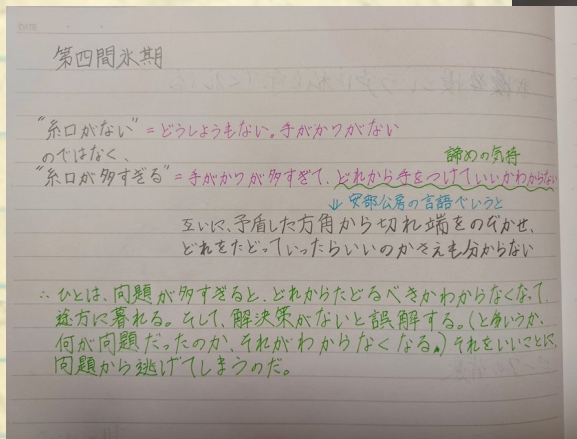 第四間氷期
"糸口がない" = どうしようもない。手がかりがない
のではなく、
諦めの気持
"糸口が多すぎる" = 手がかりが多すぎて、どれから手をつけていいかわからない
↓ 安部公房の言語でいうと
互いに、矛盾した方角から切れ端をのぞかせ、
どれをたどっていったらいいのかさえも分からない
∴ ひとは、問題が多すぎると、どれからたどるべきかわからなくなって、
途方に暮れる。そして、解決策がないと誤解する。(というか、
何が問題だったのか、それがわからなくなる。) それをいいことに、
問題から逃げてしまうのだ。